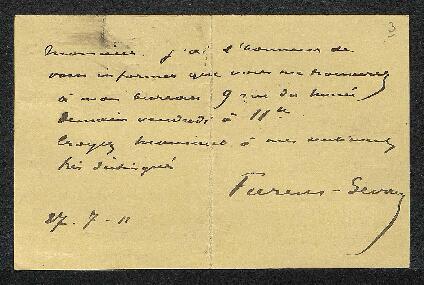 Monsieur j'ai l'honneur de
vous informer que vous me trouverez
à mon bureau 9 rue du Musée
demain vendredi à 11 h
Croyez Monsieur à mes sentiments
très distingués
Fierens-Gevaert
27-7-11
3